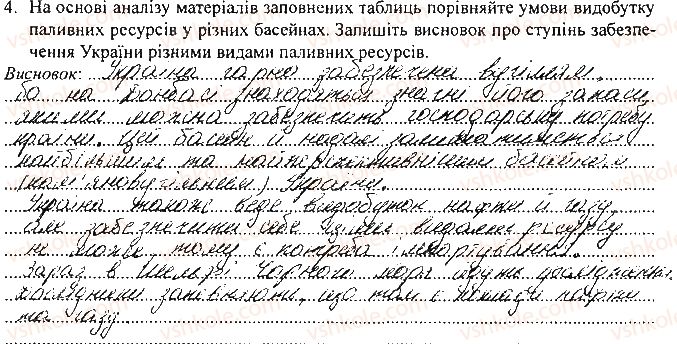 4. На основі аналізу матеріалів заповнених таблиць порівняйте умови видобутку
паливних ресурсів у різних басейнах. Запишіть висновок про ступінь забезпе-
чення України різними видами паливних ресурсів.
Висновок: Україна гарно забезпечена вугіллям,
бо на Донбасі знаходяться значні його запаси,
якими можна забезпечити господарську потребу
країни. Цей басейн й надалі залишатиметься
найбільшим та найперспективнішим басейном
(кам'яновугільним) України.
Україна також веде видобуток нафти й газу,
але забезпечити себе цими видами ресурсу
не може, тому є потреба імпортування.
Зараз в шельфі Чорного моря йдуть дослідження
дослідники запевняють, що там є поклади нафти
та газу.